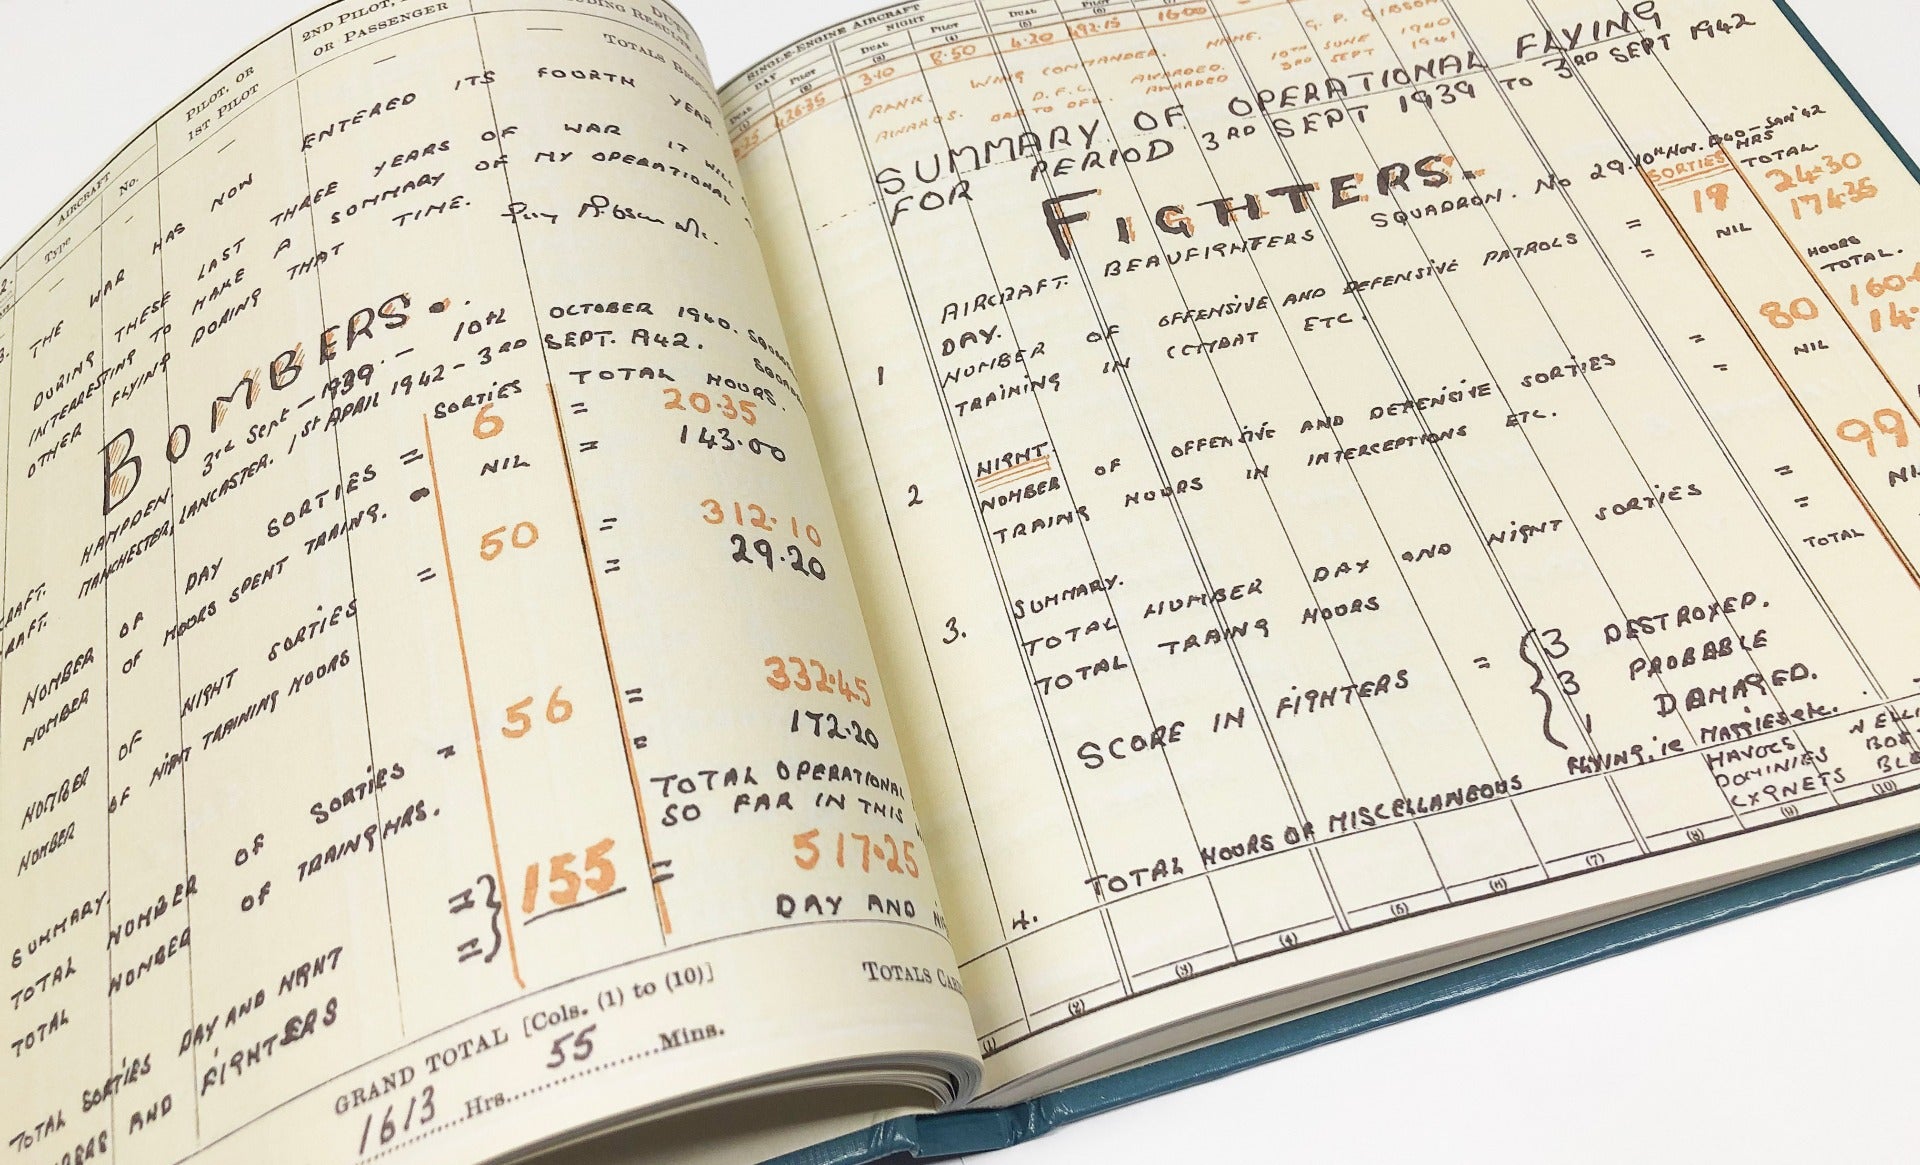 2ND PILOT,
OR PASSENGER
PILOT, OR
1ST PILOT
AIRCRAFT
Type
No.
DUTY
TOTALS
THE WAR HAS NOW ENTERED ITS FOURTH YEAR.
DURING THESE LAST THREE YEARS OF WAR IT WILL
INTERRESTING TO MAKE A SUMMARY OF MY OPERATIONAL
OTHER FLYING DURING THAT TIME. Guy Gibson
BOMBERS.
HAMPDEN. 3rd Sept - 1939. - 10th OCTOBER 1940.
MANCHESTER, LANCASTER. 1st APRIL 1942 - 3RD SEPT. 1942.
SORTIES TOTAL HOURS.
NUMBER OF DAY SORTIES = 6 = 20.35
NUMBER OF HOURS SPENT TRAING. = NIL = 143.00
NUMBER OF NIGHT SORTIES = 50 = 312.10
NUMBER OF NIGHT TRAINING HOURS = 29.20
SUMMARY.
TOTAL NUMBER OF SORTIES = 56 = 332.45
TOTAL NUMBER OF TRAING HRS. = 172.20
TOTAL OPERATIONAL
SO FAR IN THIS
TOTAL SORTIES DAY AND NIGHT = } 155 = 517.25
AND FIGHTERS =
DAY AND
GRAND TOTAL [Cols. (1) to (10)]
1613 Hrs. 55 Mins.
SINGLE-ENGINE AIRCRAFT
DAY
NIGHT
DUAL
PILOT
DUAL
PILOT
DUAL
(1)
(2)
(3)
(4)
(5)
(6)
426.35
3.10
8.50
4.20
492.15
16.00
RANK. WING COMMANDER. NAME. G. P. GIBSON
AWARDS. D.F.C. AWARDED. 10TH JUNE 1940
BAR TO DFC. AWARDED 3RD SEPT 1941
SUMMARY OF OPERATIONAL FLYING
FOR PERIOD 3RD SEPT 1939 TO 3RD SEPT 1942
FIGHTERS.
AIRCRAFT. BEAUFIGHTERS SQUADRON. No 29. 10th Nov. 1940 - JAN '42
SORTIES TOTAL HRS
1 DAY.
NUMBER OF OFFENSIVE AND DEFENSIVE PATROLS = 19 24.30
TRAINING IN COMBAT ETC. = NIL 174.35
HOURS
TOTAL.
2 NIGHT.
NUMBER OF OFFENSIVE AND DEFENSIVE SORTIES = 80
TRAING HOURS IN INTERCEPTIONS ETC. = NIL
3. SUMMARY.
TOTAL NUMBER DAY AND NIGHT SORTIES = 99
TOTAL TRAING HOURS =
TOTAL
SCORE IN FIGHTERS = { 3 DESTROYED.
3 PROBABLE
1 DAMAGED.
4. TOTAL HOURS OF MISCELLANEOUS FLYING. ie MAGGIES etc.
HAVOCS
DOMINIES
CYGNETS
(1)
(2)
(3)
(4)
(5)
(6)
(7)
(8)
(9)
(10)